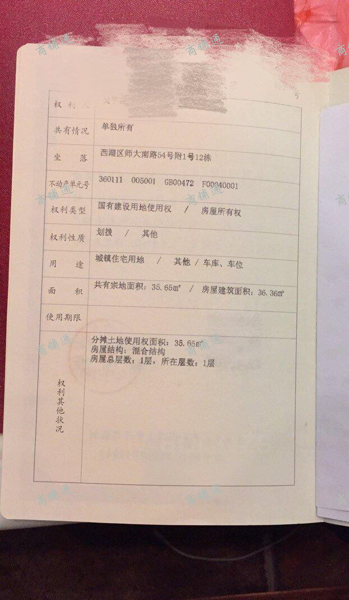 权利人
共有情况 单独所有
坐落 西湖区师大南路54号附1号12栋
不动产单元号 360111 005001 GB00472 F00040001
权利类型 国有建设用地使用权 / 房屋所有权
权利性质 划拨 / 其他
用途 城镇住宅用地 / 其他/车库、车位
面积 共有宗地面积：35.65㎡ / 房屋建筑面积：36.36㎡
使用期限
权利其他状况
分摊土地使用权面积：35.65㎡
房屋结构：混合结构
房屋总层数：1层，所在层数：1层
商铺通
商铺通
商铺通
商铺通
商铺通
商铺通